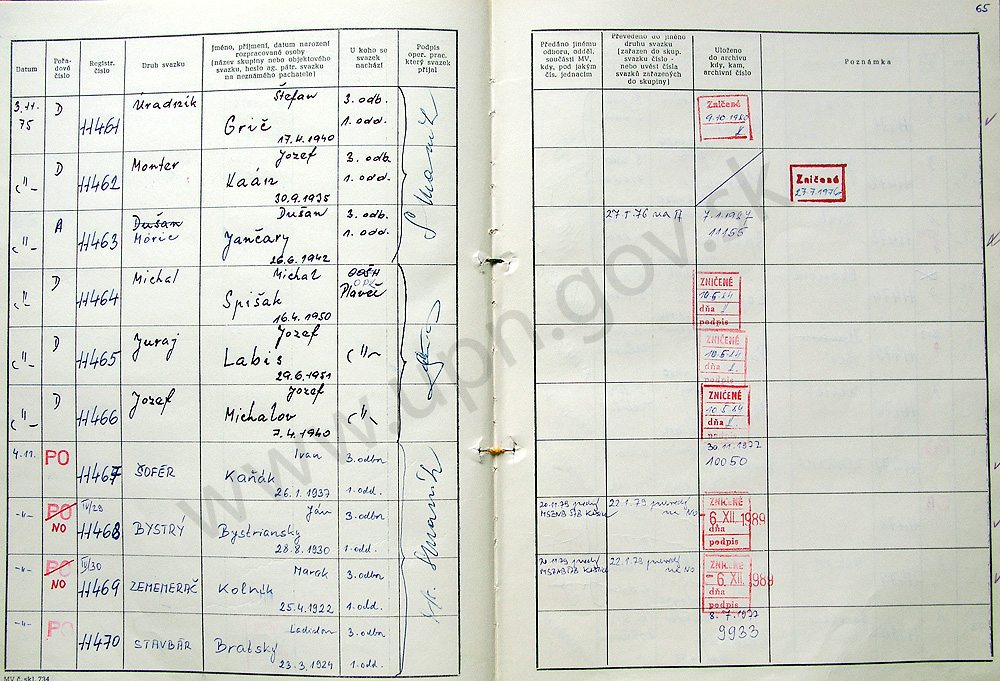 65
Datum
Pořadové číslo
Registr. číslo
Druh svazku
Jméno, příjmení, datum narození rozpracované osoby (název skupiny nebo objektového svazku, heslo ag. pátr. svazku na neznámého pachatele)
U koho se svazek nachází
Podpis oper. prac. který svazek přijal
Předáno jinému odboru, odděl. součásti MV, kdy, pod jakým čís. jednacím
Převedeno do jiného druhu svazku (zařazen do skup. svazku číslo - nebo uvést čísla svazků zařazených do skupiny)
Uloženo do archivu kdy, kam, archivní číslo
Poznámka
3.11. 75
D
11461
Úradník
Štefan
Grič
17.4.1940
3. odb.
1. odd.
Zničené
9.10.1980
D
11462
Monter
Jozef
Kaán
30.9.1935
3. odb.
1. odd.
Zničené
27.7.1976
-"-
A
11463
Dušan
Móric
Dušan
Jančary
26.6.1942
3. odb.
1. odd.
27.5.76 na A
7.1.1987
11155
-"-
D
11464
Michal
Michal
Spišák
16.4.1950
OOŠH
Plaveč
ZNIČENÉ
10.5.84
dňa
podpis
-"-
D
11465
Juraj
Jozef
Labis
29.6.1951
-"-
ZNIČENÉ
10.5.84
dňa
podpis
-"-
D
11466
Jozef
Jozef
Michalov
7.4.1940
-"-
ZNIČENÉ
10.5.84
dňa
4.11.
PO
11467
ŠOFÉR
Ivan
Kaňák
26.1.1937
3. odbor
1. odd.
30.11.1977
10050
-"-
PO
NO
IV/29
11468
BYSTRÝ
Ján
Bystriansky
28.8.1930
3. odbor
1. odd.
22.1.79
na NO
ZNIČENÉ
- 6. XII. 1989
dňa
podpis
-"-
PO
NO
IV/30
11469
ZEMEMERAČ
Marak
Kolník
25.4.1922
3. odbor
1. odd.
22.1.79
na NO
ZNIČENÉ
- 6. XII. 1989
dňa
podpis
-"-
PO
11470
STAVBÁR
Ladislav
Bratský
23.3.1924
3. odbor
1. odd.
8.7.1977
9933
MV č. skl. 734
www.upn.gov.sk